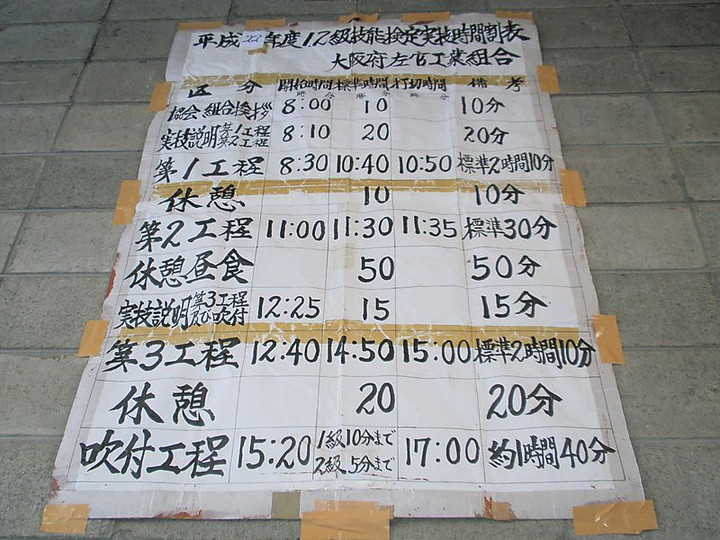 平成22年度1.2級技能検定実技時間割表
大阪府左官工業組合
区分 開始時間 標準時間 打切時間 備考
時 分 時 分 時 分
協会 組合挨拶 8:00 10 10分
実技説明 第1工程 第2工程 8:10 20 20分
第1工程 8:30 10:40 10:50 標準2時間10分
休憩 10 10分
第2工程 11:00 11:30 11:35 標準30分
休憩昼食 50 50分
実技説明 第3工程 及び吹付 12:25 15 15分
第3工程 12:40 14:50 15:00 標準2時間10分
休憩 20 20分
吹付工程 15:20 1級10分まで 2級 5分まで 17:00 約1時間40分